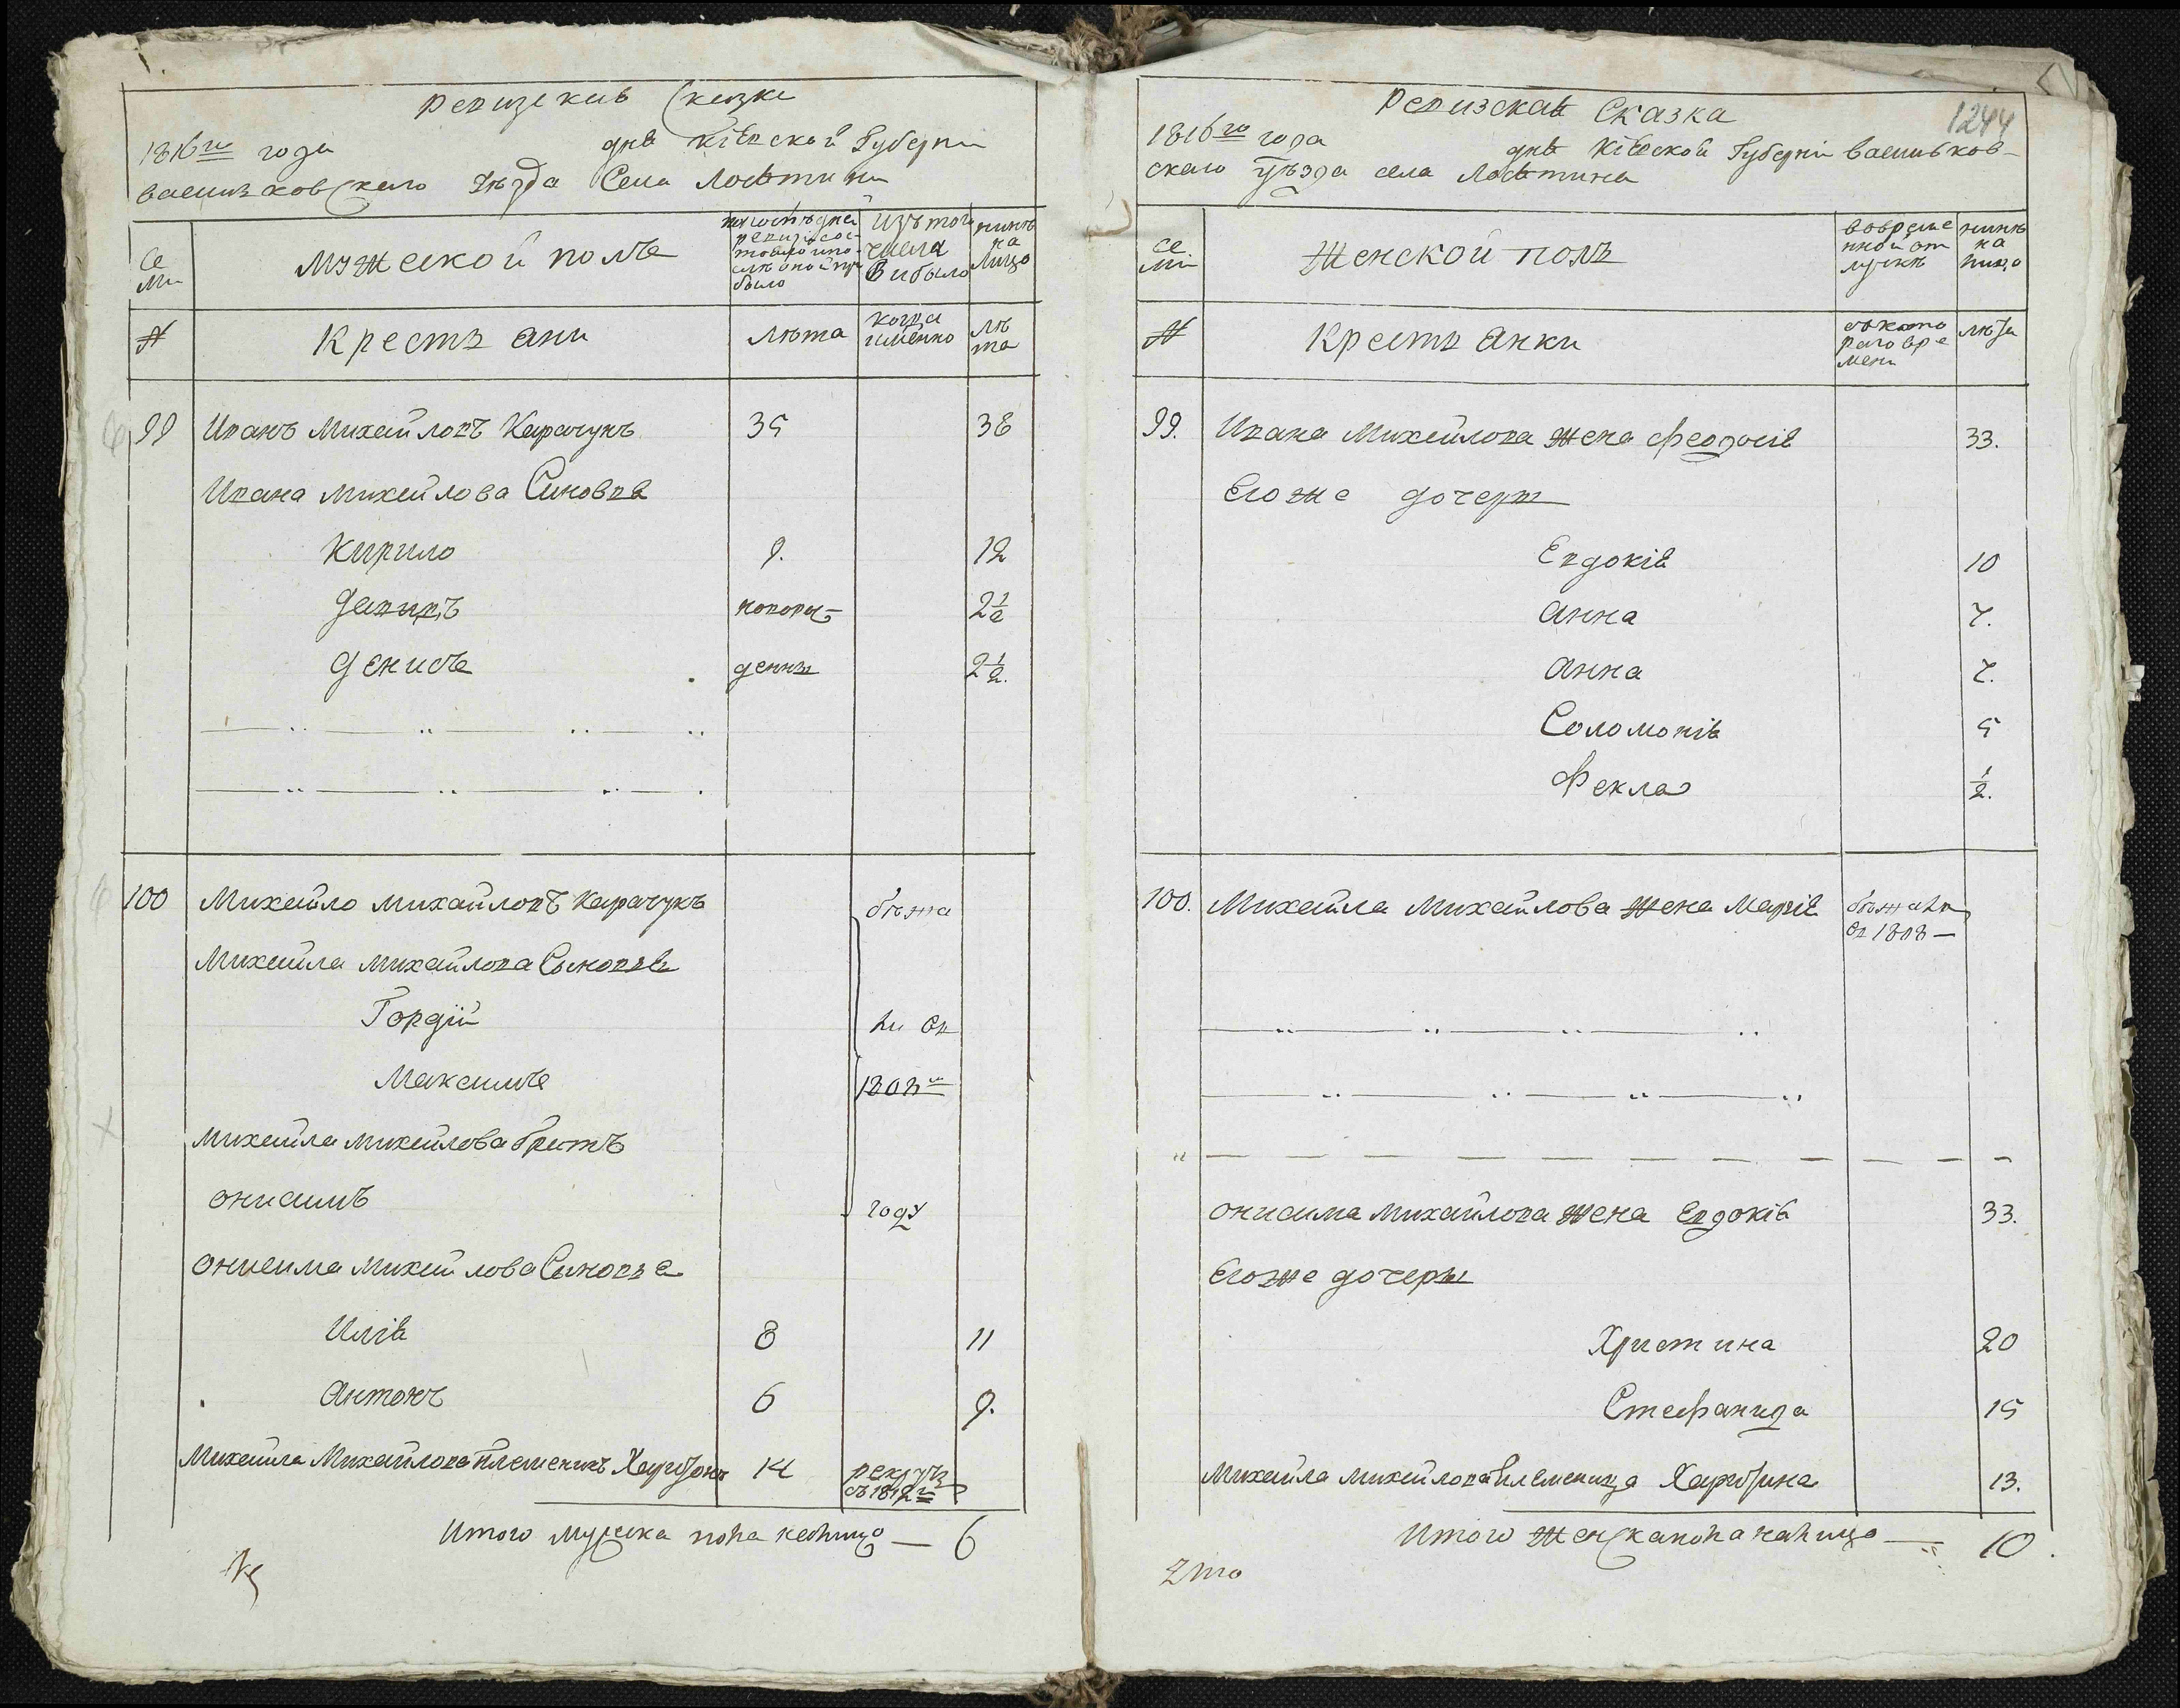 Ревизская Сказка
1816го года дня Кіевской Губерніи
Василковского уезда Села Лосятина
Се
ми
Мужеской полъ
по последней
ревизіи сос-
тояло и по-
сле оной при
было
изъ того
числа
выбыло
ныне
на
лицо
№
Крестьяни
лета
когда
имянно
ле
та
99 Иванъ Михайловъ Карачукъ 35 38
Ивана Михайлова Сыновья
Кирило 9. 12
Данилъ новорож- 2½
Денисъ денны 2½.
100 Михайло Михайловъ Карачукъ бежа
Михайла Михайлова Сыновья
Гордій ли въ
Максимъ 1808м
Михайла Михайлова братъ
Онисимъ году
Онисима Михайлова Сыновья
Илія 8 11
Антонъ 6 9.
Михайла Михайлова племеникъ Харитонъ 14 рекрутъ
въ 1812м
Итого мужеска пола налицо — 6
1244
Ревизская Сказка
1816го года дня Кіевской Губерніи Василков-
скаго уезда села Лосятина
Се
мі
Женской полъ
во време
нной от
лучке
ныне
на
лицо
№
Крестьянки
съ кото
раго вре
мени
лета
99. Ивана Михайлова жена Феодосія 33.
Его же дочеры
Евдокія 10
Анна 7.
Анна 7.
Соломонія 5
Фекла ½.
100. Михайла Михайлова жена Марія бежали
въ 1808 —
Онисима Михайлова жена Евдокія 33.
Его же дочеры
Христина 20
Стефанида 15
Михайла Михайлова племеница Харитина 13.
Итого женска пола налицо — 10.